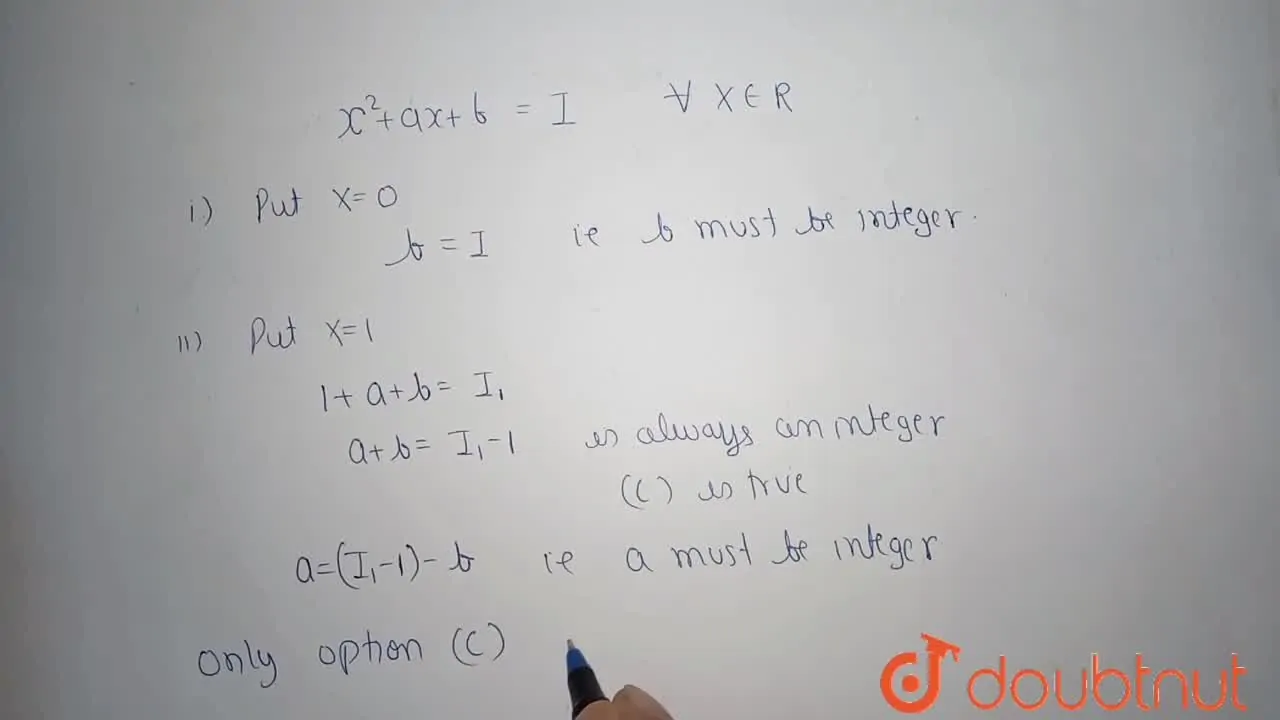 x²+ax+b = I ∀ x ∈ R
i) Put x=0
b = I ie b must be integer.
ii) Put x=1
1+a+b= I₁
a+b= I₁-1 is always an integer
(C) is true
a=(I₁-1)-b ie a must be integer
only option (C)
doubtnut